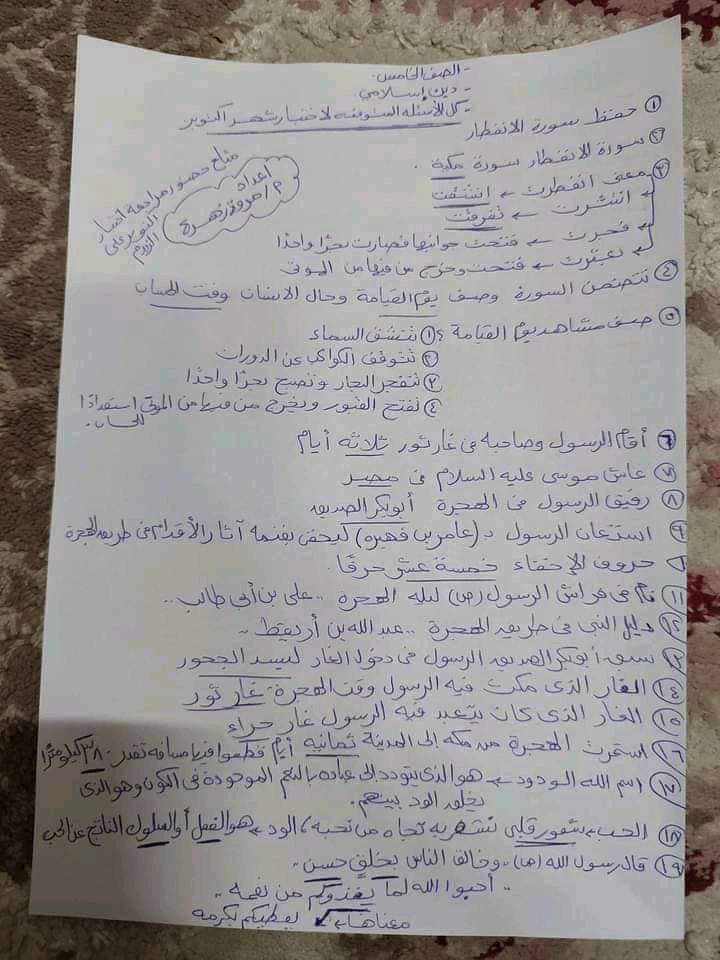 - الصف الخامس.
- دين إسلامي.
- كل الأسئلة المتوقعة لاختبار شهر أكتوبر
① حفظ سورة الانفطار
② سورة الانفطار سورة مكية.
③ معنى انفطرت ← انشقت
انتثرت ← تفرقت
فجرت ← فتحت جوانبها فصارت بحرًا واحدًا
بعثرت ← فتحت وخرج من فيها من الموتى
اعداد
م/مروة زهرة
متاح حضور مراجعة اختبار
اكتوبر على
الزووم
④ تتضمن السورة وصف يوم القيامة وحال الإنسان وقت الحساب
⑤ صف مشاهد يوم القيامة؟ ① تنشق السماء
② تتوقف الكواكب عن الدوران
③ تتفجر البحار وتصبح بحرًا واحدًا
④ تفتح القبور ويخرج من فيها من الموتى استعدادًا
للحساب.
⑥ أقام الرسول وصاحبه في غار ثور ثلاثة أيام
⑦ عاش موسى عليه السلام في مصر
⑧ رفيق الرسول في الهجرة أبوبكر الصديق
⑨ استعان الرسول بـ (عامر بن فهيرة) ليخفى بغنمه آثار الأقدام في طريق الهجرة
⑩ حروف الإخفاء خمسة عشر حرفًا.
⑪ نام في فراش الرسول (ص) ليلة الهجرة .. على بن أبي طالب ..
⑫ دليل النبي في طريق الهجرة .. عبد الله بن أريقط ..
⑬ سبق أبوبكر الصديق الرسول في دخول الغار ليسد الجحور
⑭ الغار الذى مكث فيه الرسول وقت الهجرة غار ثور
⑮ الغار الذى كان يتعبد فيه الرسول غار حراء
⑯ استمرت الهجرة من مكة إلى المدينة ثمانية أيام قطعوا فيها مسافة تقدر بـ ٣٨٠ كيلو مترًا
⑰ اسم الله الودود ← هو الذى يتودد إلى عباده بالنعم الموجودة في الكون وهو الذى
يخلق الود بينهم.
⑱ الحب ← شعور قلبى تشعر به تجاه من تحبه، الود ← هو الفعل أو السلوك الناتج عن الحب
⑲ قال رسول الله (ص) .. وخالق الناس بخلق حسن ..
.. أحبوا الله لما يغذوكم من نعمه ..
معناها ← يعطيكم بكرمه